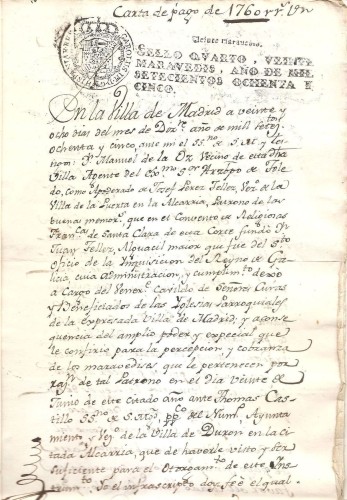 Carta de pago de 1760 rr.s vn
Veinte maravedis.
SELLO QVARTO, VEINTE
MARAVEDIS, AÑO DE MIL
SETECIENTOS OCHENTA Y
CINCO.
En la Villa de Madrid a veinte y
ocho dias del mes de Dzre. año de mil setez.tos
ochenta y cinco, ante mi el SS.no de S.M. y
D.n Manuel de la Oz Vecino de esta
Villa Agente del Exmo. S.or Arzbpo de Tole-
do, como Apoderado de Josef Perez Tellez, Vez.o de la
Villa de la Puerta en la Alcarria, Patrono de las
buenas memor.s que en el Convento de Religiosas
Fran.cas de Santa Clara de esta Corte fundó D.n
Juan Tellez, Alguacil maior que fue del S.to
oficio de la Inquisicion del Reyno de Ga-
licia, cuia Administracion, y cumplim.to dexó
a Cargo del Vener.e Cavildo de Señores Curas
y Beneficiados de las Iglesias Parroquiales
de la expresada Villa de Madrid; y a conse-
quencia del amplio poder, y especial que
le confirio para la percepcion, y cobranza
de los maravedises, que le pertenecen por
raz.n de tal Patrono en el dia veinte de
Junio de este citado año ante Thomas Cas-
tillo SS.no de S. Mag.d pp.co del Num.o Ayunta-
miento, y Vez.o de la Villa de Duron en la ci-
tada Alcarria, que de haverle visto y ser
suficiente para el Otorgam.to de este Ins-
trum.to Yo el infrascripto doy fee el qual